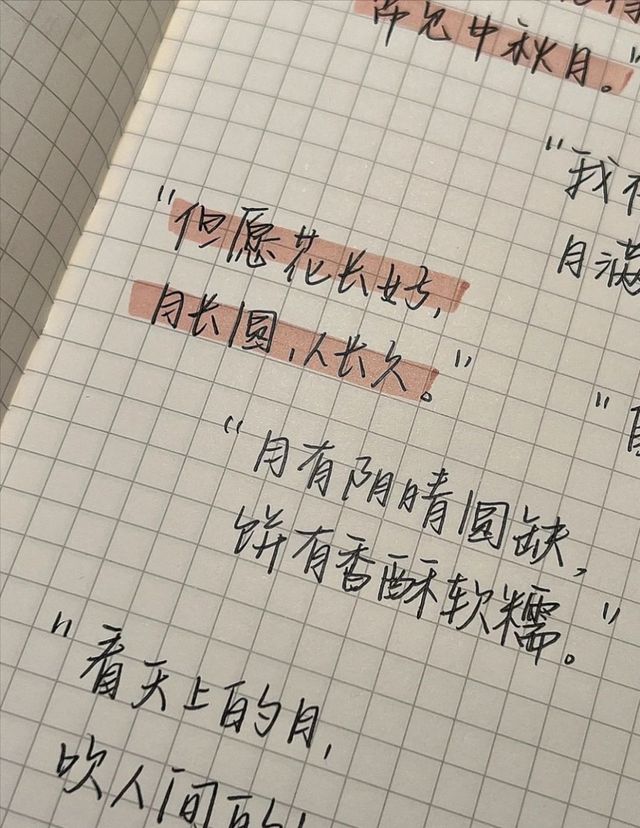 中秋月。"
"我
月满
"但愿花长好,
月长圆,人长久。"
"月有阴晴圆缺,
饼有香酥软糯。"
"看天上的月,
吹人间的